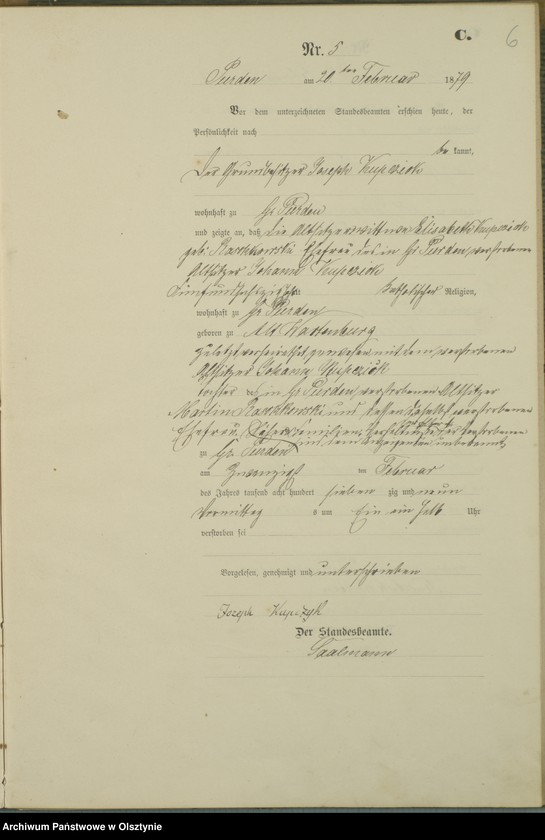 C.
6
Nr. 5
Purden am 20ten Februar 1879
Vor dem unterzeichneten Standesbeamten erschien heute, der
Persönlichkeit nach
be kannt,
Der Grundbesitzer Joseph Kupczick
wohnhaft zu Gr Purden
und zeigte an, daß die Altsitzerwittwe Elisabeth Kupczick
geb. Raschkowski Ehefrau des in Gr Purden verstorbenen
Altsitzer Johann Kupczick
fünfundsechszig Jahr katholischer Religion,
wohnhaft zu Gr Purden
geboren zu Alt Wartenburg
zuletzt verheirathet gewesen mit dem verstorbenen
Altsitzer Johann Kupczick
Tochter des in Gr Purden verstorbenen Altsitzer
Martin Raschkowski und dessen daselbst verstorbenen
Ehefrau, sind dem Anzeigenden unbekannt,
zu Gr. Purden
am Zwanzigst ten Februar
des Jahres tausend acht hundert sieben zig und neun
Vormittag s um Ein ein halb Uhr
verstorben sei
Vorgelesen, genehmigt und unterschrieben
Jozeph Kupczyk
Der Standesbeamte.
Saalmann
Archiwum Państwowe w Olsztynie